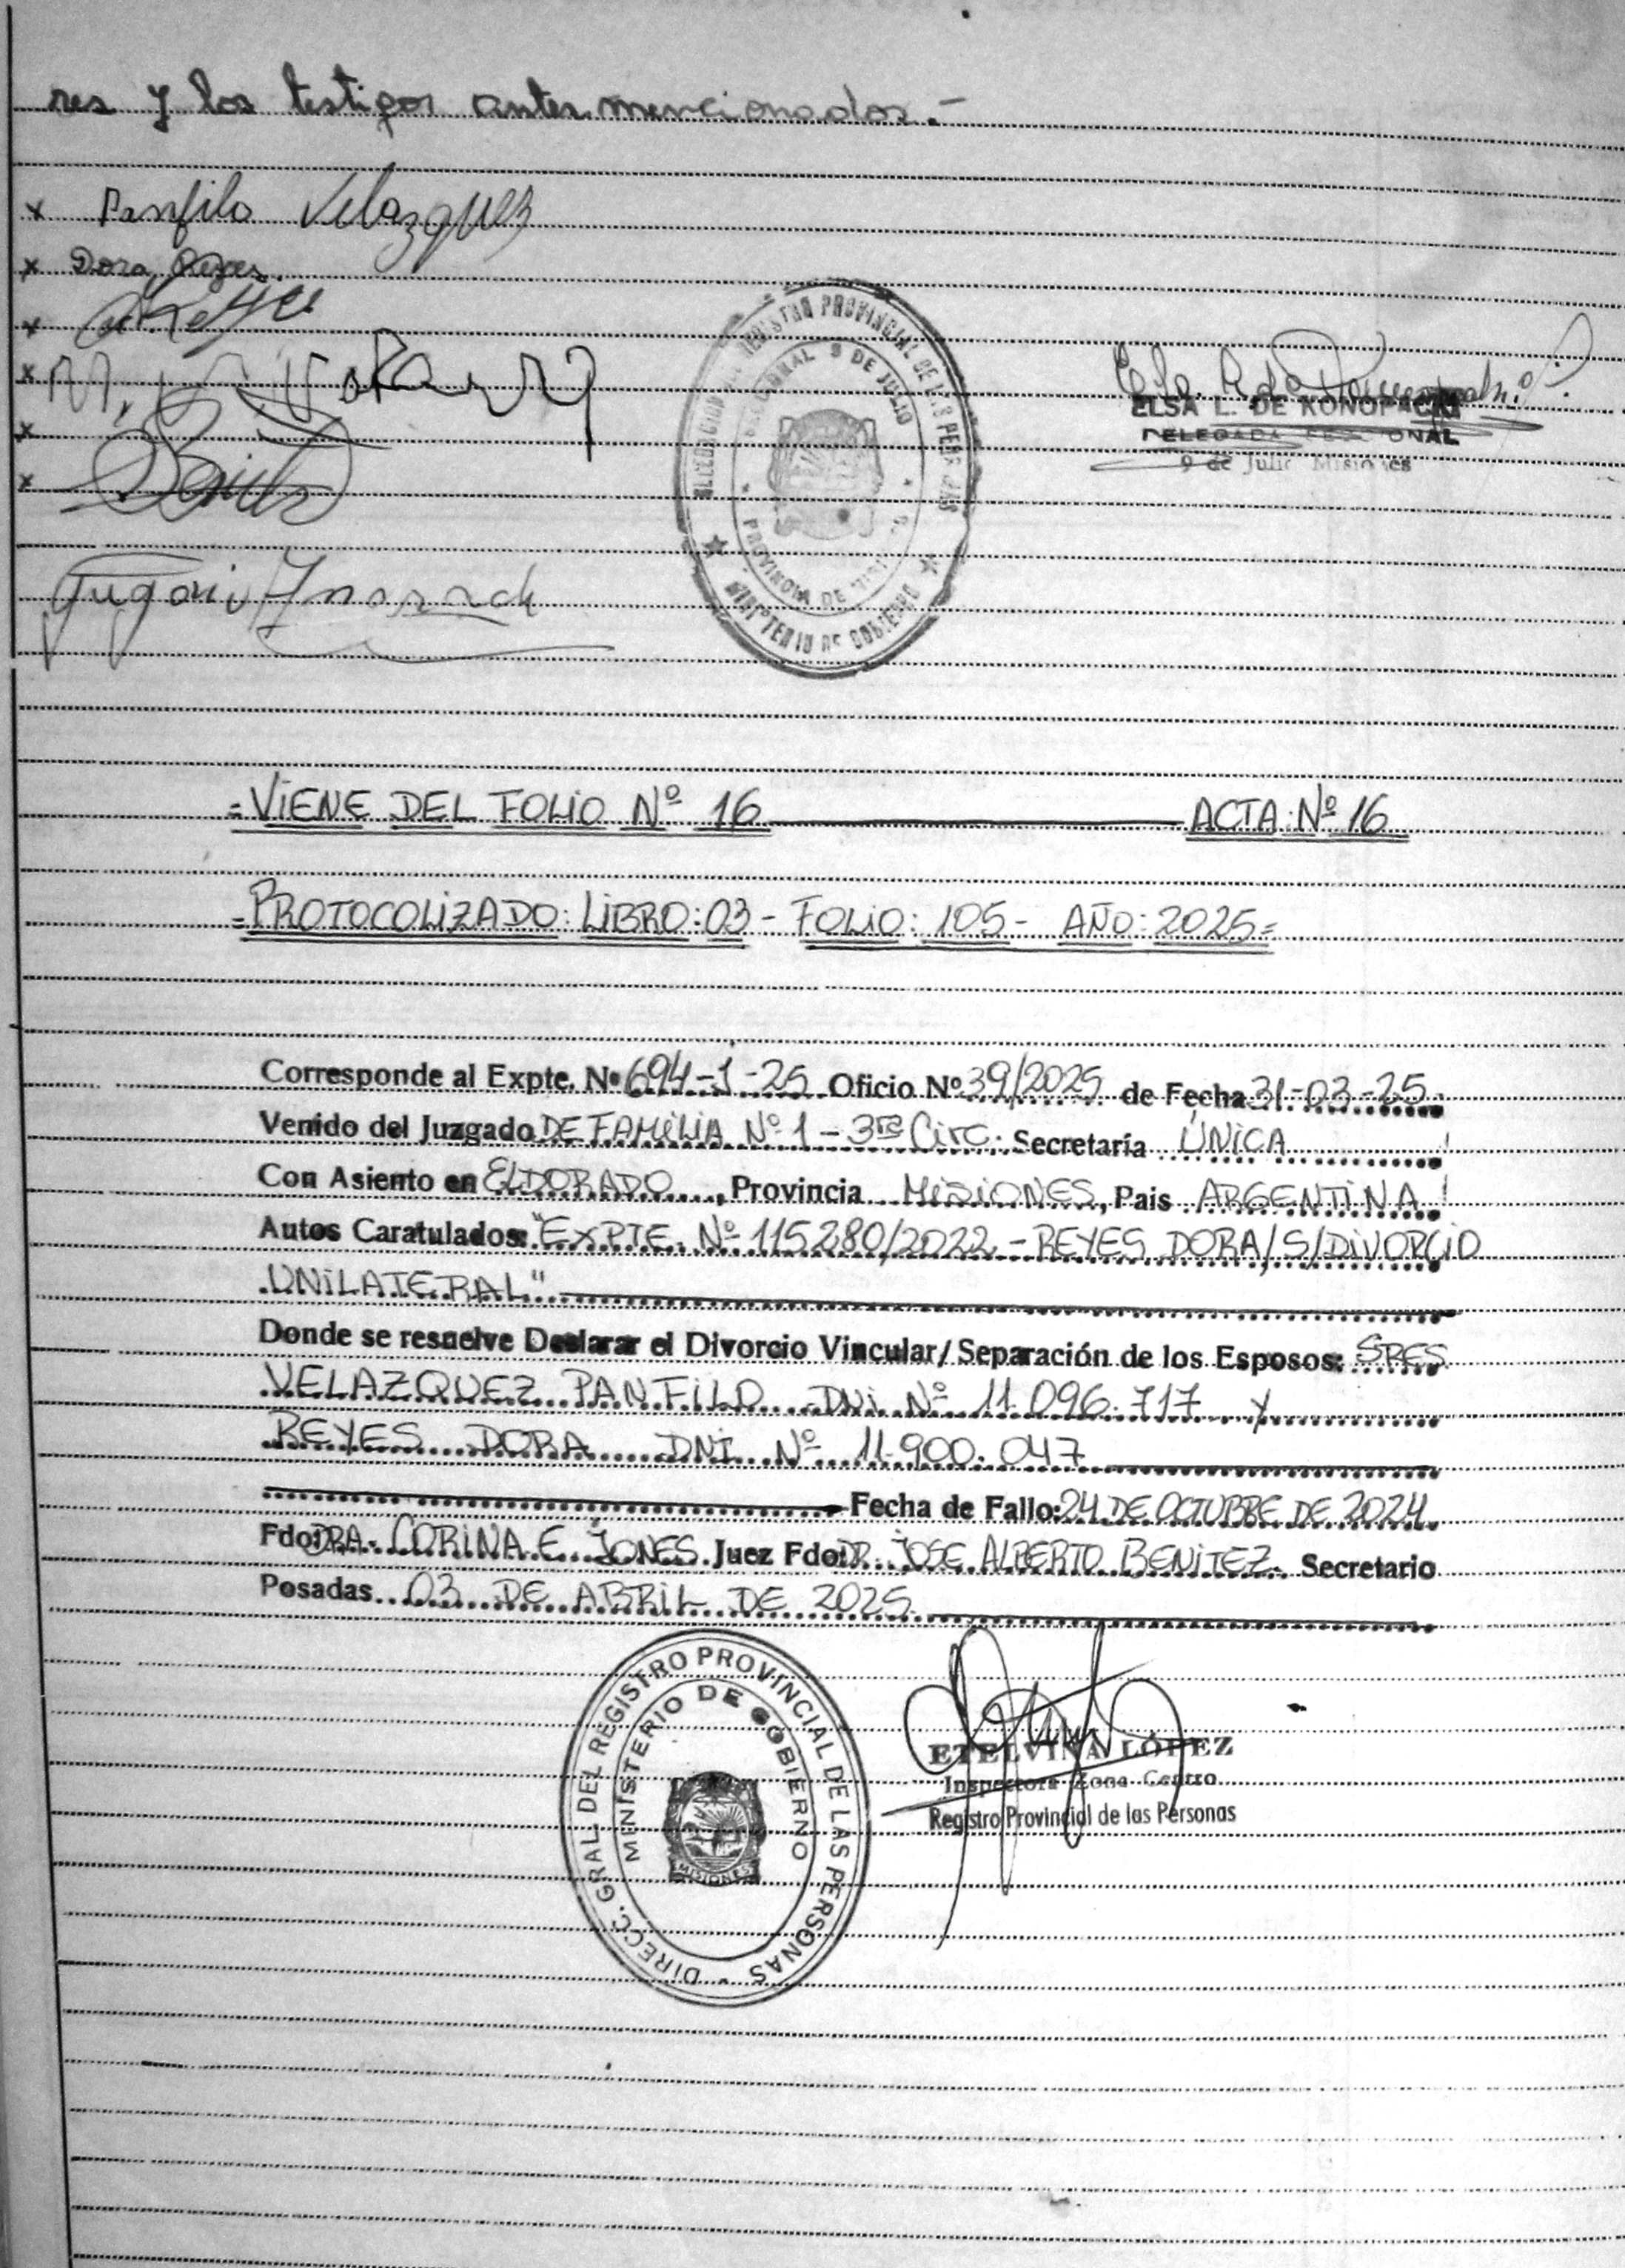 res y los testigos antes mencionados.-
x Panfilo Velazquez
x Dora Reyes.
x
x M.
x
x
REGISTRO PROVINCIAL DE LAS PERSONAS
9 DE JULIO
PROVINCIA DE
MINISTERIO DE GOBIERNO
ELSA L. DE KONOPACKI
DELEGADA SECCIONAL
9 de Julio Misiones
=VIENE DEL FOLIO Nº 16 ACTA: Nº 16
=PROTOCOLIZADO: LIBRO: 03 - FOLIO: 105 - AÑO: 2025=
Corresponde al Expte. Nº 694-1-25 Oficio Nº 39/2025 de Fecha 31-03-25
Venido del Juzgado DE FAMILIA Nº 1 - 3ra Circ. Secretaría ÚNICA
Con Asiento en ELDORADO, Provincia MISIONES, Pais ARGENTINA
Autos Caratulados: "EXPTE. Nº 115280/2022 - REYES DORA/S/DIVORCIO
UNILATERAL"
Donde se resuelve Declarar el Divorcio Vincular/Separación de los Esposos: SRES
VELAZQUEZ PANFILO DNI Nº 11.096.717 y
REYES DORA DNI Nº 11.900.047
Fecha de Fallo: 24 DE OCTUBRE DE 2024
Fdo: DRA. CORINA E. JONES Juez Fdo: DR. JOSE ALBERTO BENITEZ. Secretario
Posadas 03 DE ABRIL DE 2025
DIRECC. GRAL DEL REGISTRO PROVINCIAL DE LAS PERSONAS
MINISTERIO DE GOBIERNO
MISIONES
ETELVINA LÓPEZ
Inspectora Zona Centro
Registro Provincial de las Personas